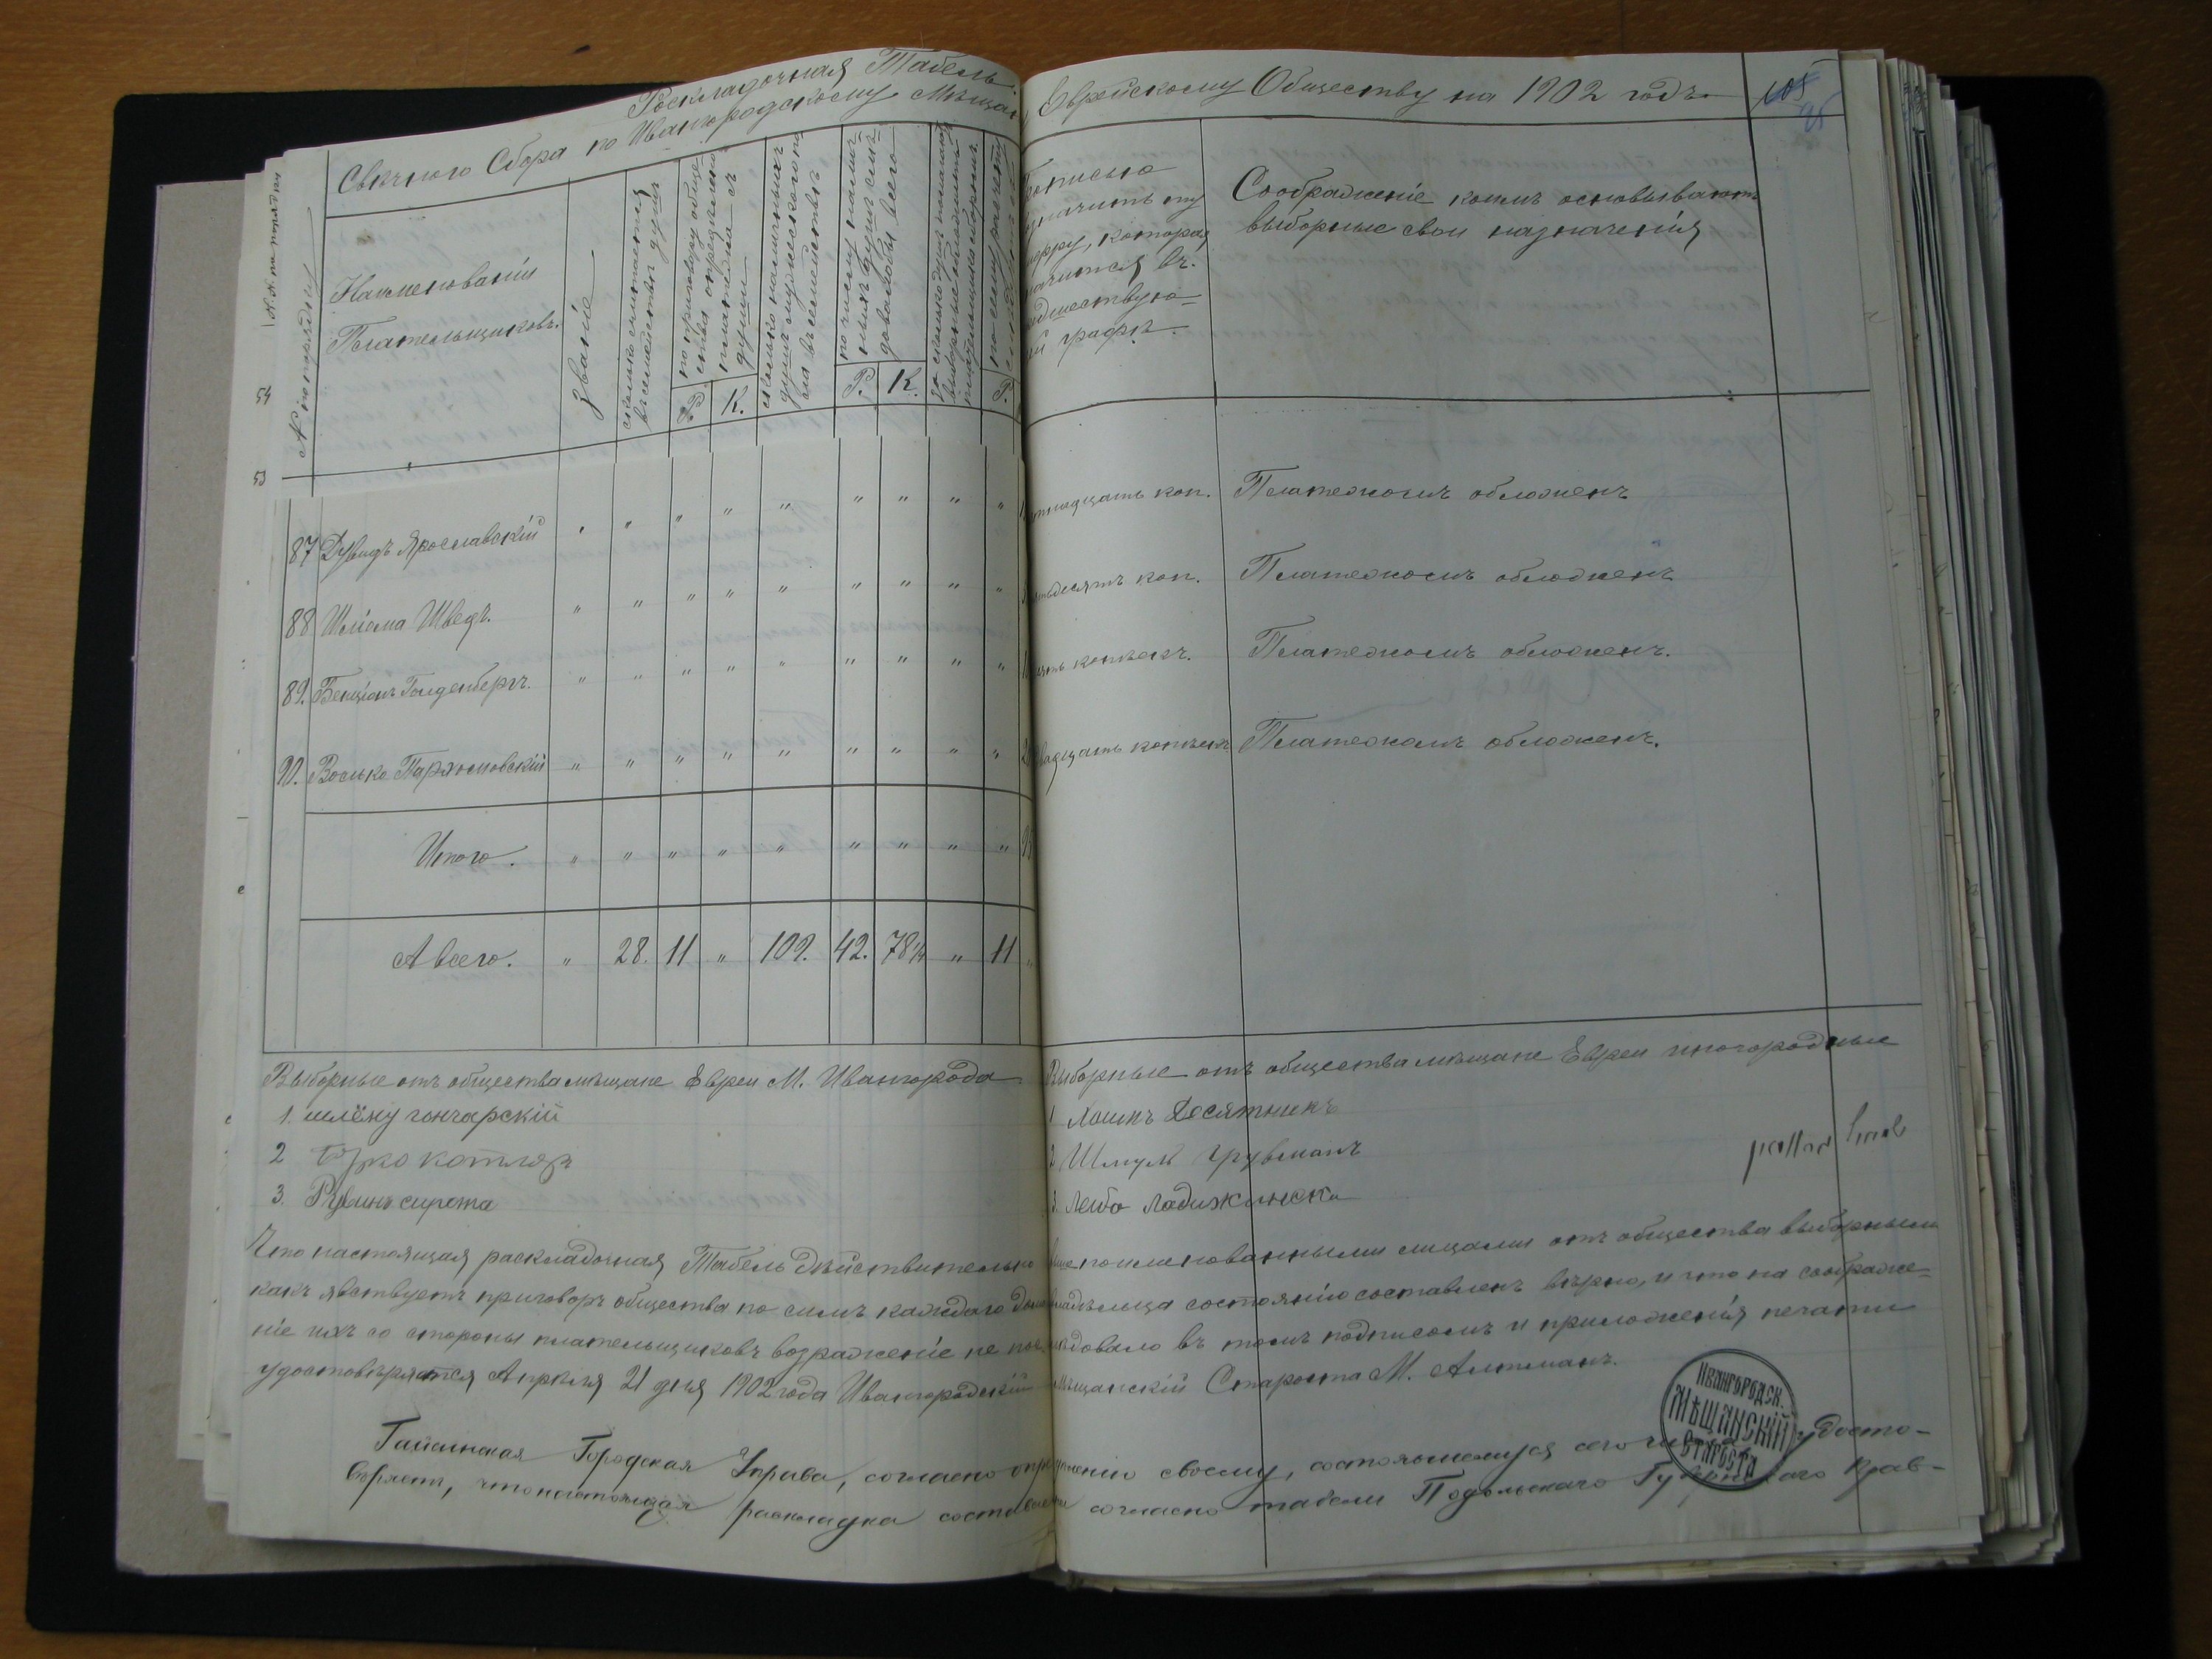 Раскладочная Табель
Свѣчного Сбора по Ивангородскому Мѣщан
Еврейскому Обществу на 1902 годъ.
105
№ по порядку
Наименованіи
Плательщиковъ.
Званіе
сколько считается
въ семействѣ душъ
по приговору обще-
ства опредѣлено
Р.
К.
сколько наличныхъ
душъ мужескаго по
ла въ семействѣ
по числу налич-
ныхъ душъ слѣ-
довало бы всего
Р.
К.
Р.
прописью
значить ту
которая
значится въ
предшествую-
й графѣ.
Соображеніе коимъ основываютъ
выборные свои назначенія
54
53
87 Дувидъ Ярославскій " " " " " " " " "
надцать коп. Платежомъ обложенъ
88 Шліома Шведъ. " " " " " " " " "
десятъ коп. Платежомъ обложенъ
89. Бенціонъ Голденбергъ. " " " " " " " " "
копѣекъ. Платежомъ обложенъ.
90. Воська Пархомовскій " " " " " " " " "
двадцать копѣекъ Платежомъ обложенъ.
Итого. " " " " " " " " "
А всего. " 28. 11 " 109. 42. 78 1/4 " 11 "
Выборные отъ общества мѣщане Евреи М. Ивангорода
1. шлёму гончарскій
2 Ерко котляръ
3. Рувинъ сирота
Выборные отъ общества мѣщане Евреи иногородные
1 Хаимъ Десятникъ
2 Шмуль Грувманъ
3. Лейбо Ладижинскі
Что настоящая раскладочная Табель дѣйствительно вышепоименованными лицами отъ общества выборными
какъ явствуетъ приговоръ общества по силѣ каждаго домовладѣльца состоянію составленъ вѣрно, и что на соображе-
ніе ихъ со стороны плательщиковъ возраженіе не послѣдовало въ томъ подписомъ и приложенія печати
удостовѣряется Апрѣля 21 дня 1902 года Ивангородскій Мѣщанскій Староста М. Алтманъ.
ИВАНГОРОДСК.
МѢЩАНСКІЙ
СТАРОСТА
Гайсинская Городская Управа, согласно опредѣленію своему, состоявшемуся сего числа, удосто-
вѣряетъ, что настоящая раскладка составлена согласно табели Подольскаго Губернскаго Прав-